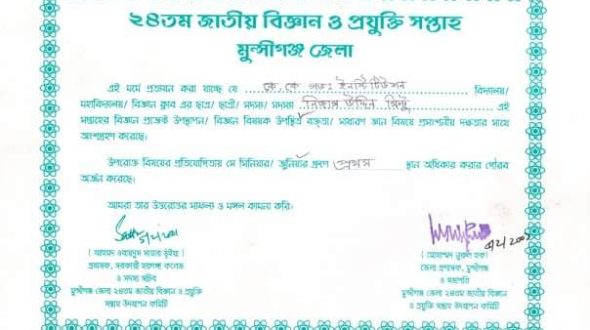 ২৪তম জাতীয় বিজ্ঞান ও প্রযুক্তি সপ্তাহ
মুন্সীগঞ্জ জেলা
এই মর্মে প্রত্যয়ন করা যাচ্ছে যে কে, কে গভঃ ইনস্টিটিউশন বিদ্যালয়/
মহাবিদ্যালয়/ বিজ্ঞান ক্লাব এর ছাত্র/ ছাত্রী/ সদস্য/ সদস্যা উদ্দিন এই
সপ্তাহের বিজ্ঞান প্রজেক্ট উপস্থাপন/ বিজ্ঞান বিষয়ক উপস্থিত বক্তৃতা/ সাধারণ জ্ঞান বিষয়ে প্রশংসনীয় দক্ষতার সাথে
অংশগ্রহণ করেছে।
উপরোক্ত বিষয়ের প্রতিযোগিতায় সে সিনিয়র/ জুনিয়র গ্রুপে প্রথম স্থান অধিকার করার গৌরব
অর্জন করেছে।
আমরা তার উত্তরোত্তর সাফল্য ও মঙ্গল কামনা করি।
প্রভাষক, সরকারী হরগঙ্গা কলেজ
ও সদস্য সচিব
মুন্সীগঞ্জ জেলা ২৪তম জাতীয় বিজ্ঞান ও প্রযুক্তি
সপ্তাহ উদযাপন কমিটি
( মোহাম্মদ নুরুল হক )
জেলা প্রশাসক, মুন্সীগঞ্জ
ও সভাপতি
মুন্সীগঞ্জ জেলা ২৪তম জাতীয় বিজ্ঞান
ও প্রযুক্তি সপ্তাহ উদযাপন কমিটি